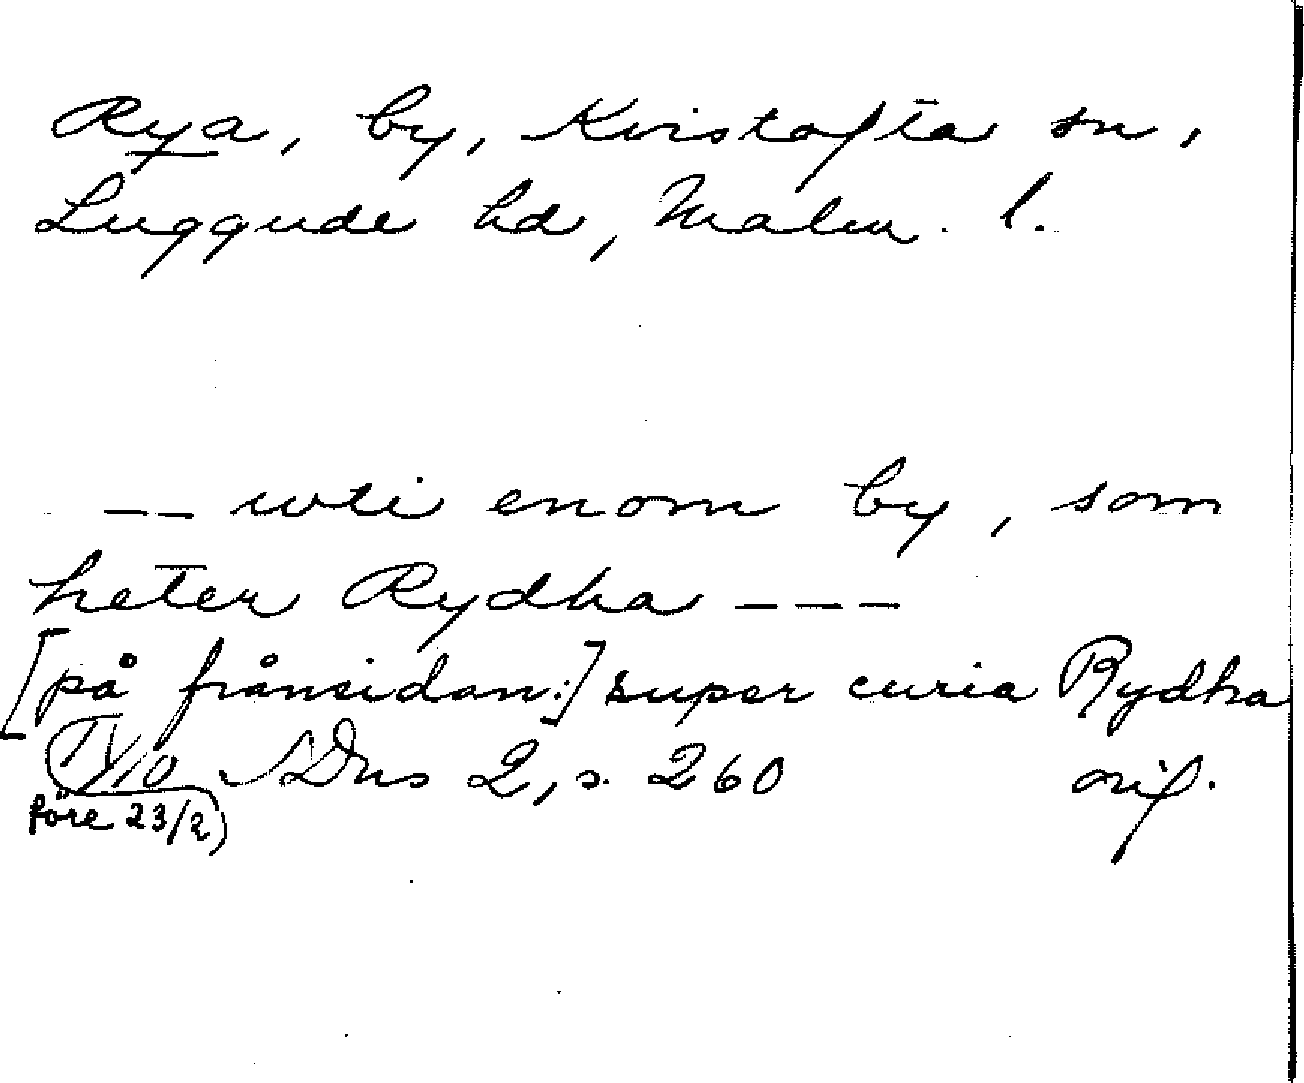 Rya, by, Kvistofta sn,
Luggude hd, Malm. l.
-- uti enom by, som
heter Rydha ---
[på frånsidan:] super curia Rydha
SDns 2, s. 260 orig.
före 23/2)